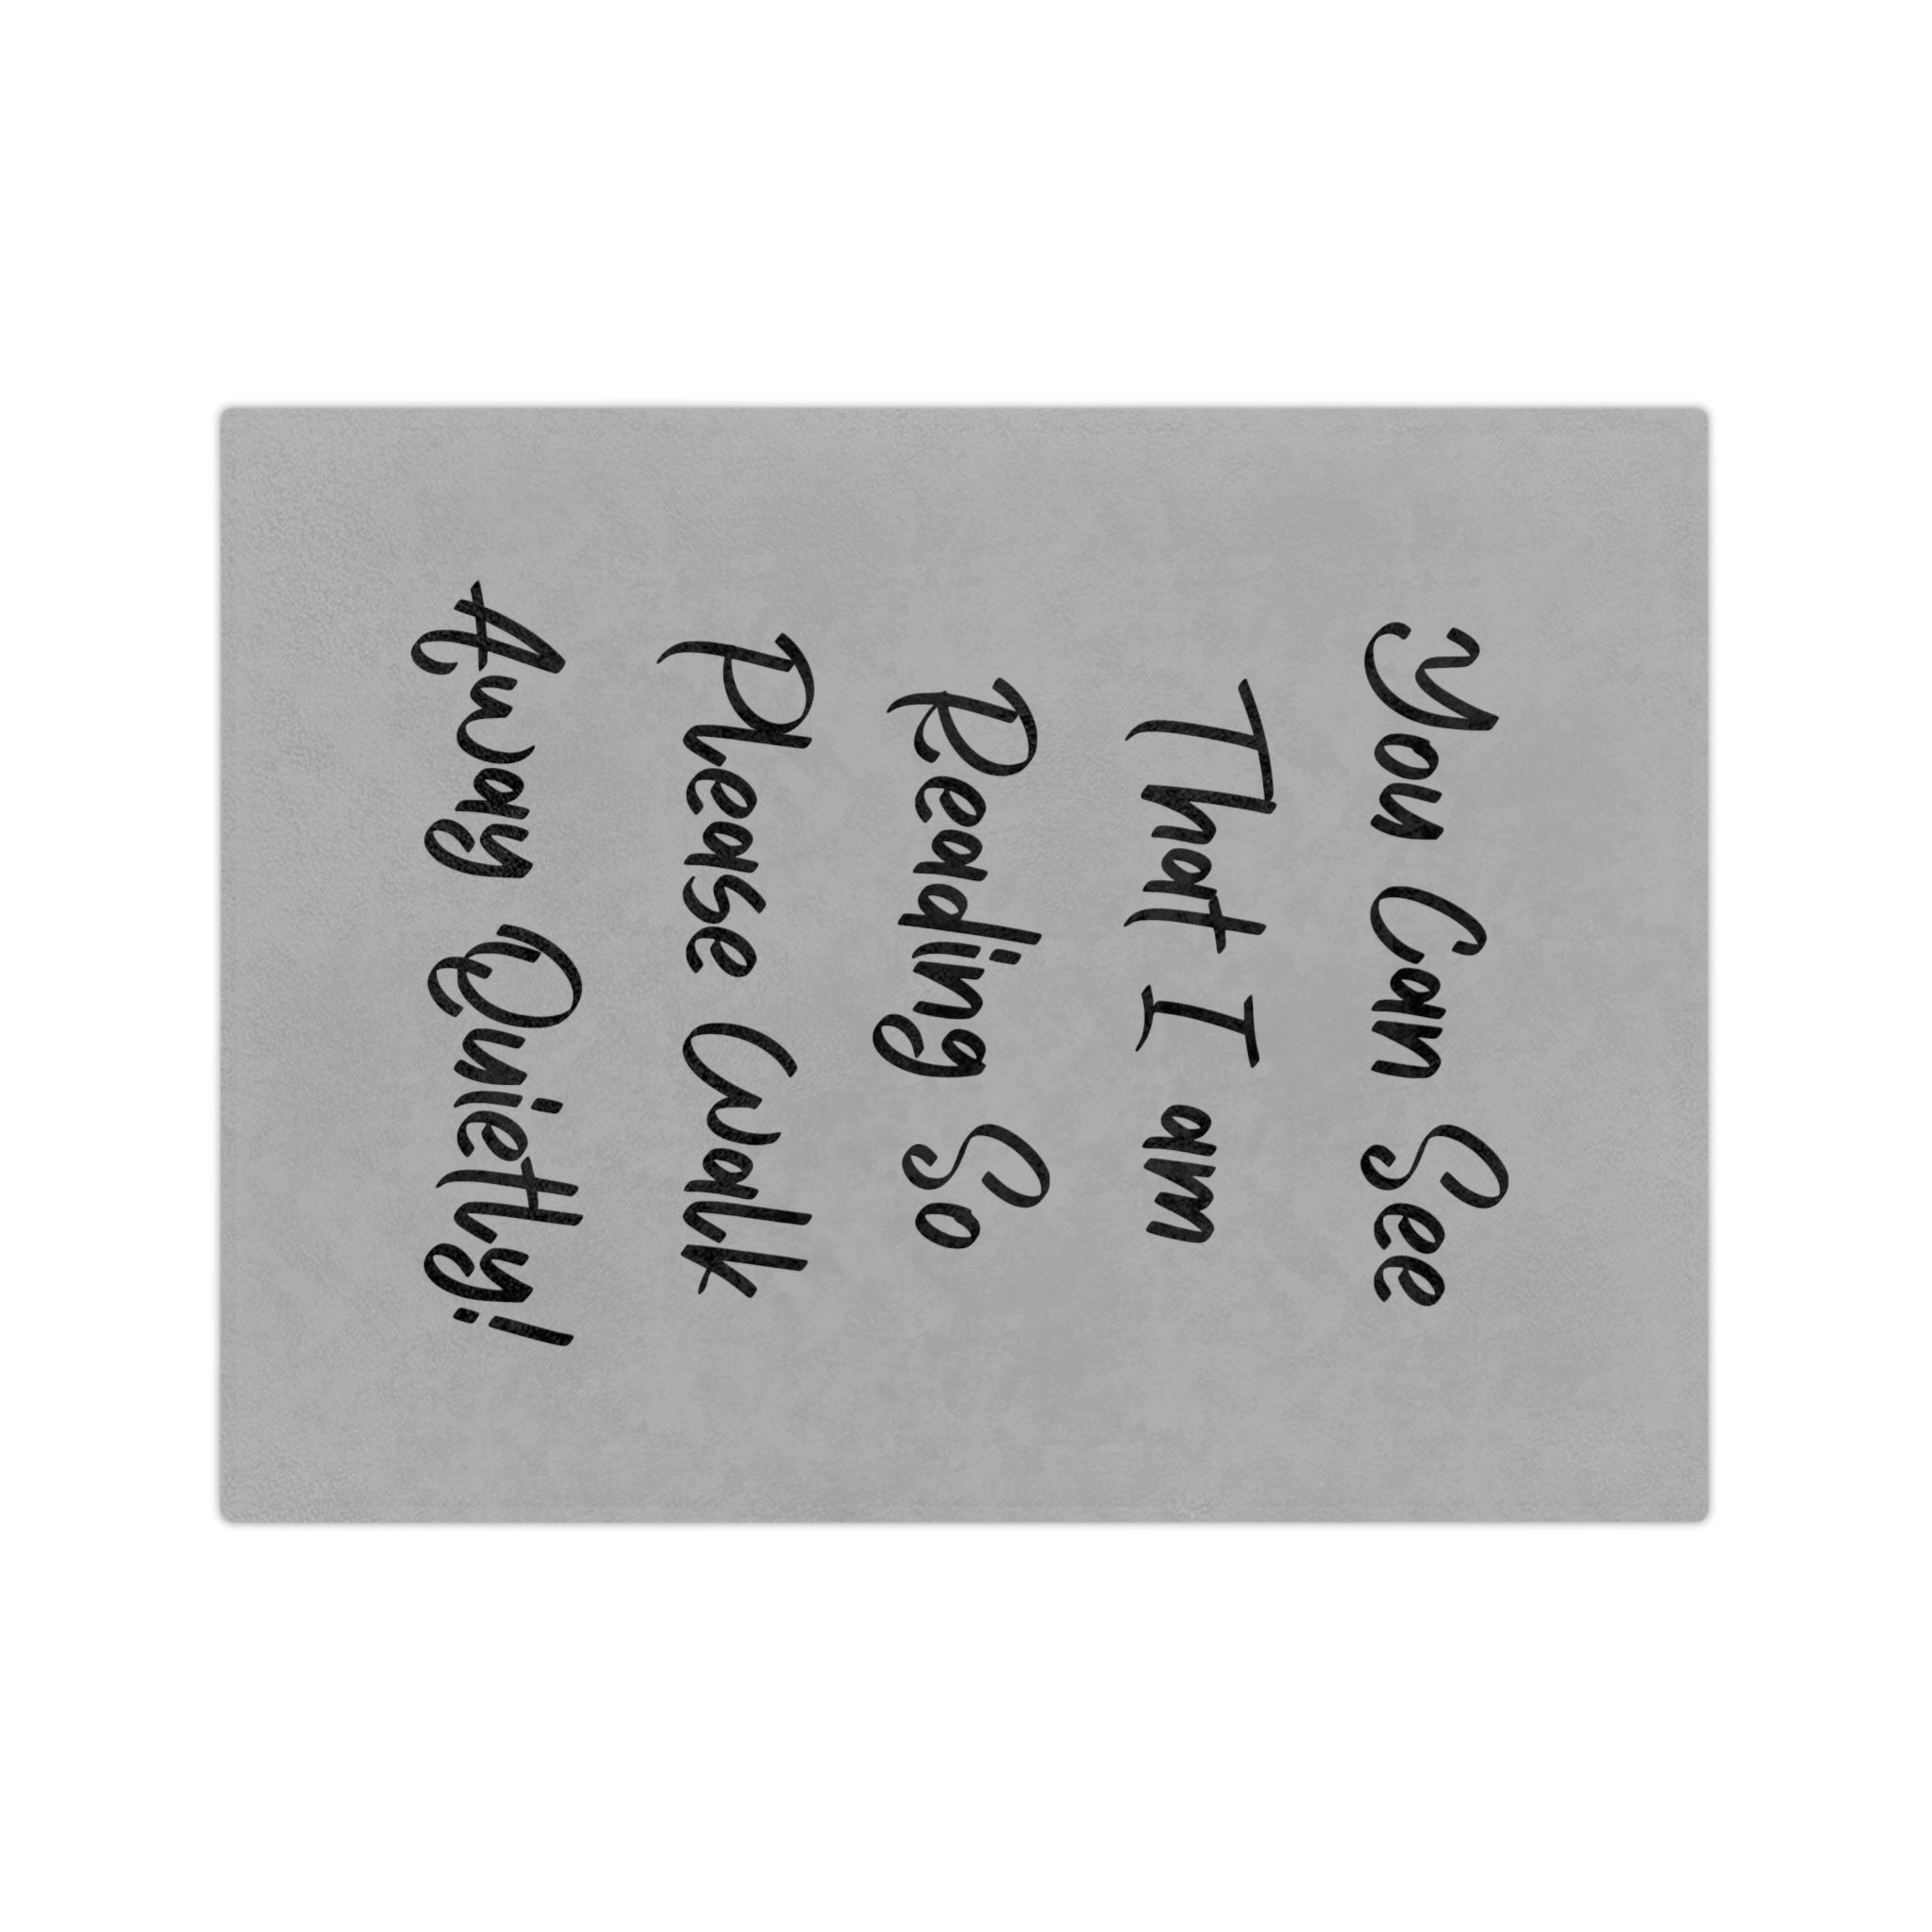 You Can See
That I am
Reading So
Please Walk
Away Quietly!